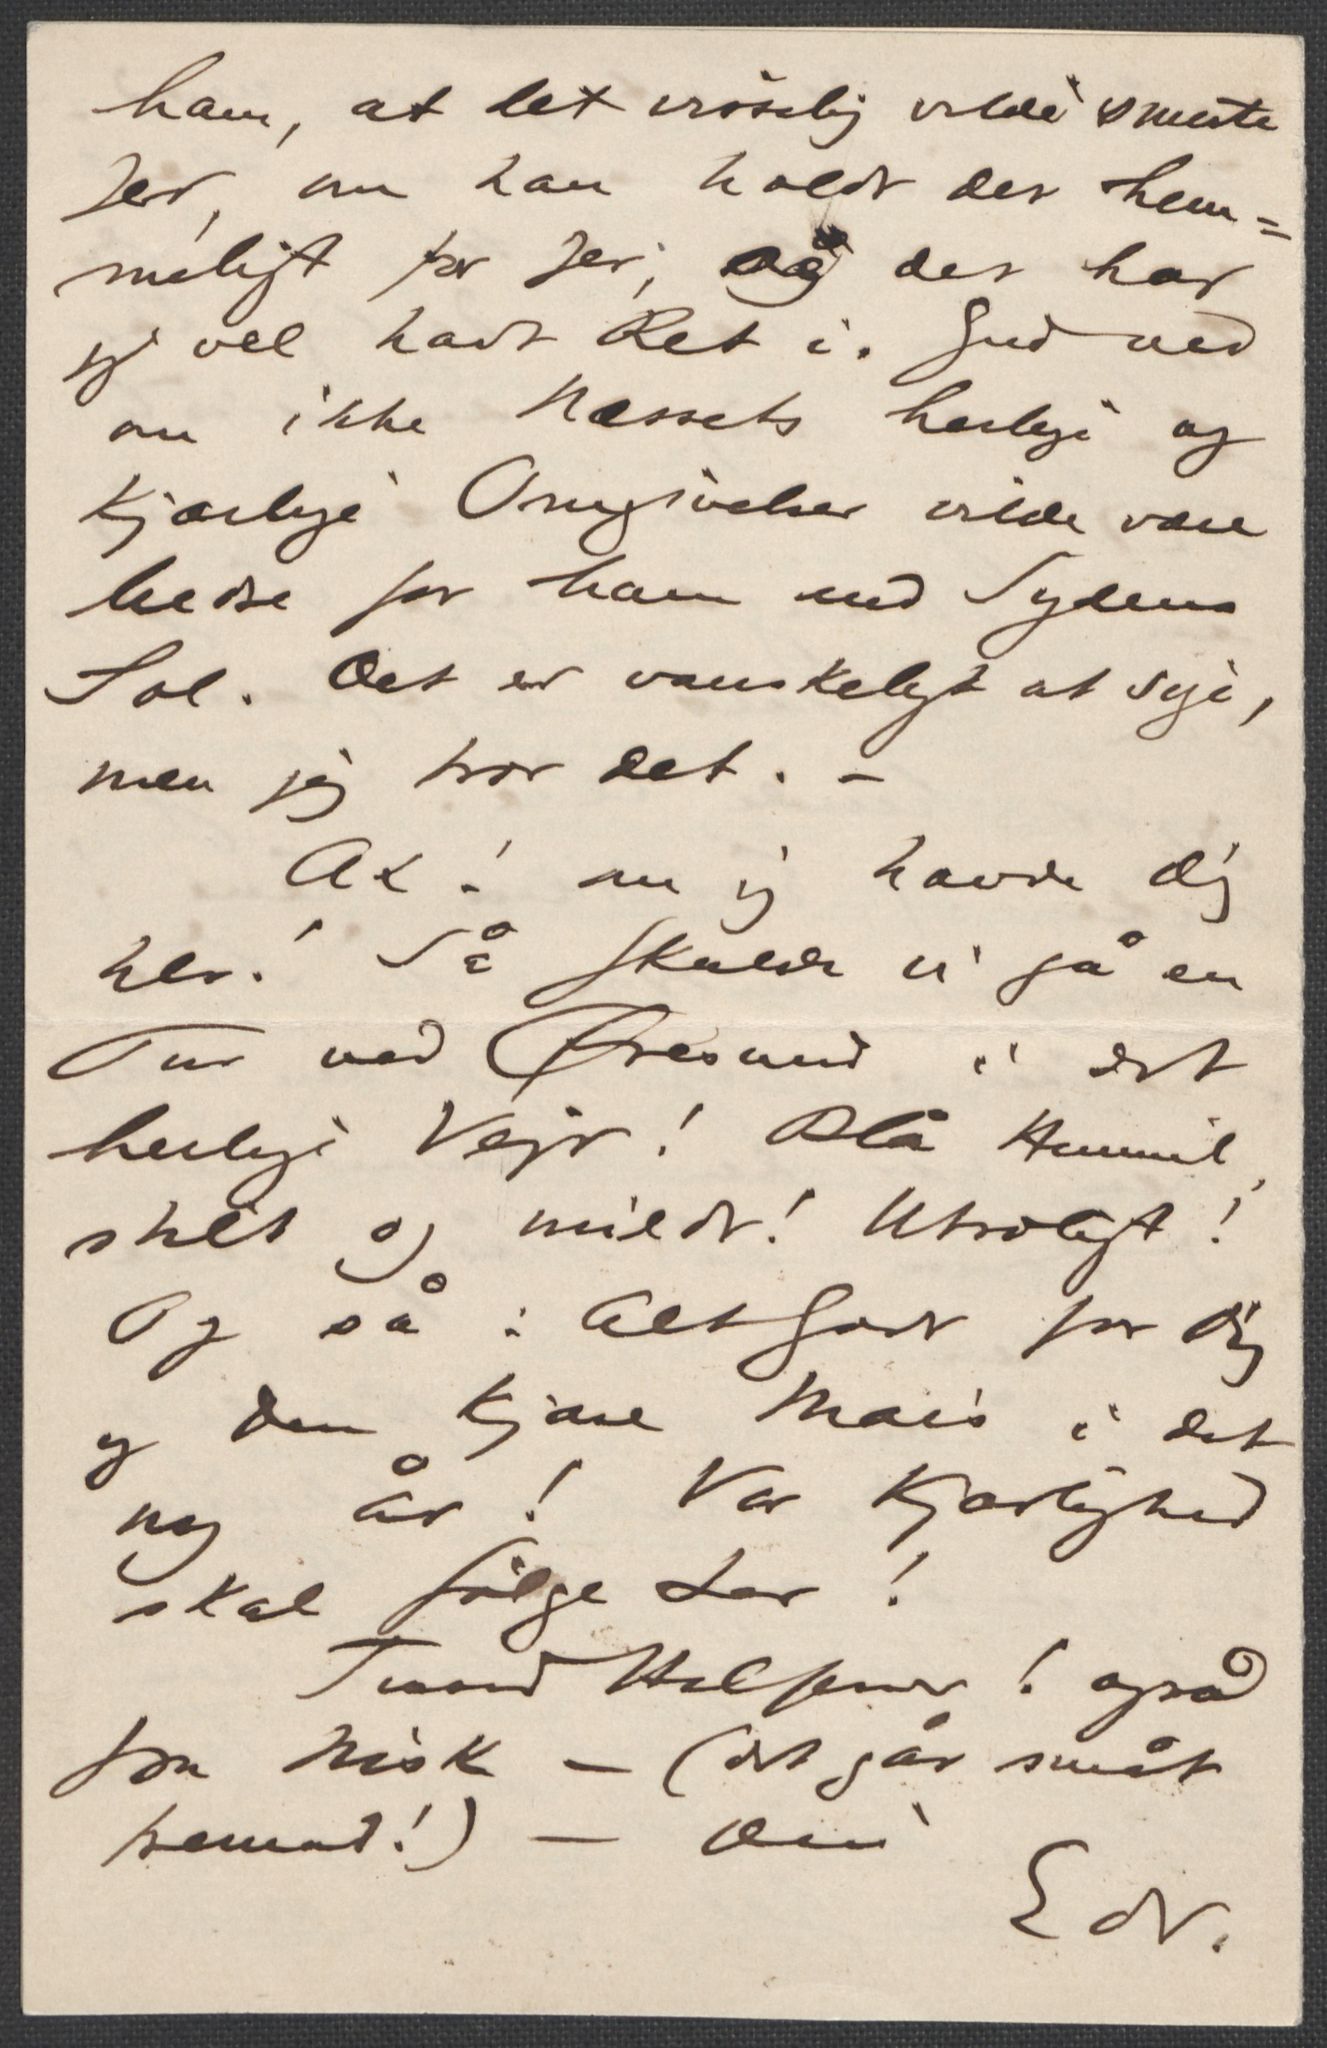 ham, at det visselig vilde smerte
Jer, om han holdt det hem=
meligt for Jer, og det har
jeg vel havt Ret i. Gud ved
om ikke Næssets herlige og
kjærlige Omgivelser vilde være
bedre for ham end Sydens
Sol. Det er vanskeligt at sige,
men jeg tror det. –
Ak! om jeg havde Dig
her! Så skulde vi gå en
Tur ved Øresund i det
herlige Vejr! Blå Himmel,
stille og mildt! Utroligt!
Og så: Alt Godt for Dig
og den kjære Mais i det
ny år! Vor Kjærlighed
skal følge Jer!
Tusend Hilsener! også
fra Nisk – (det går småt
fremad!) – Din
Edv.